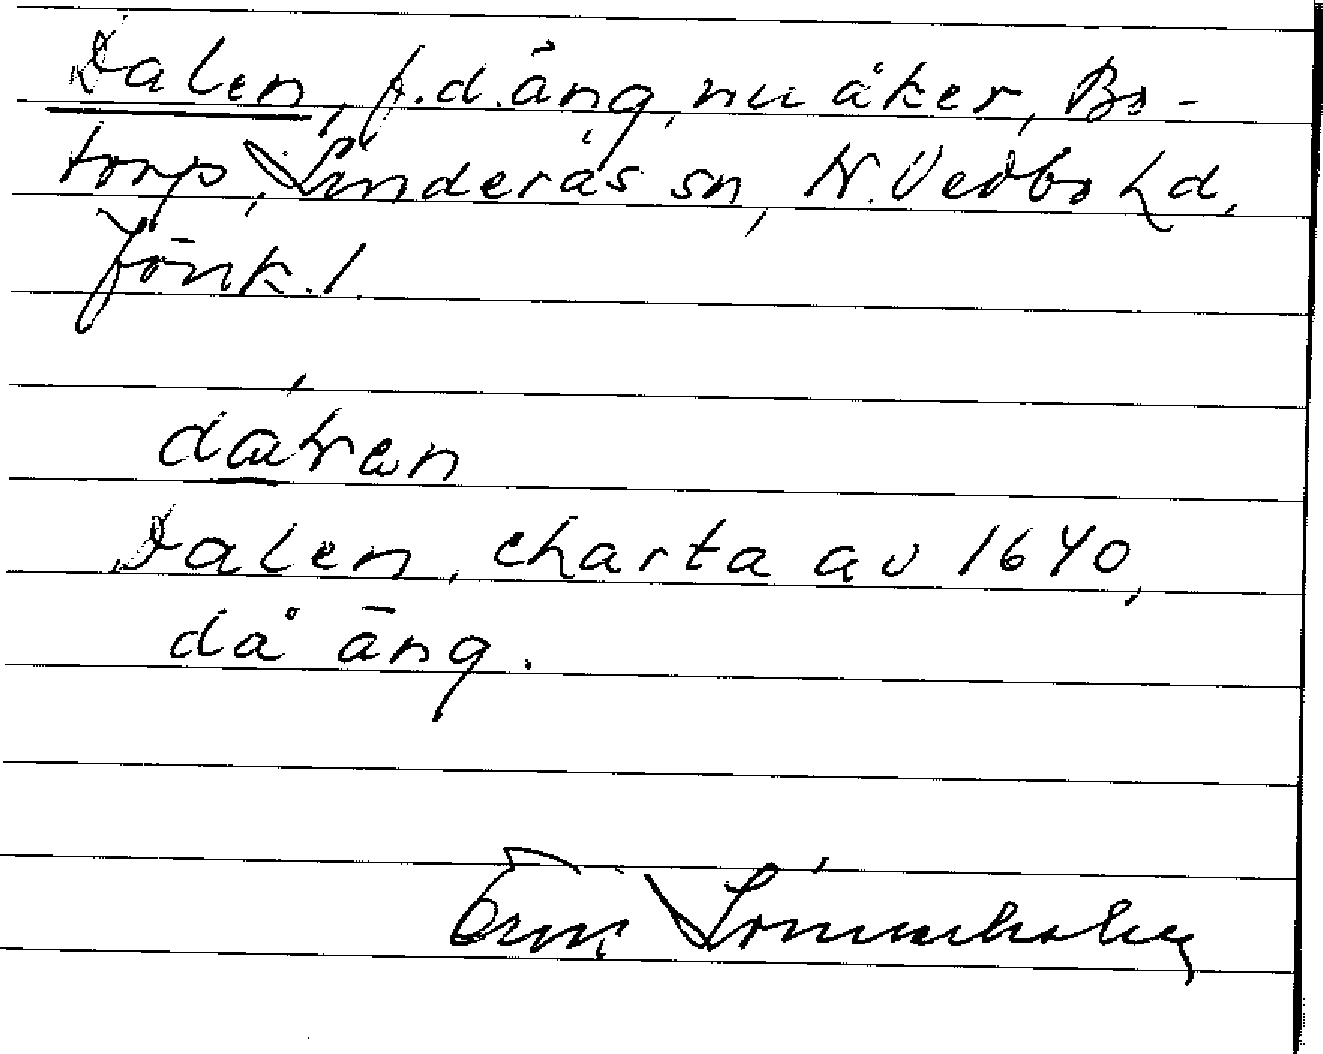 Dalen, f.d. äng, nu åker, Bo-
torp, Linderås sn, N. Vedbo hd,
Jönk. l.
Dalen, charta av 1640,
då äng.